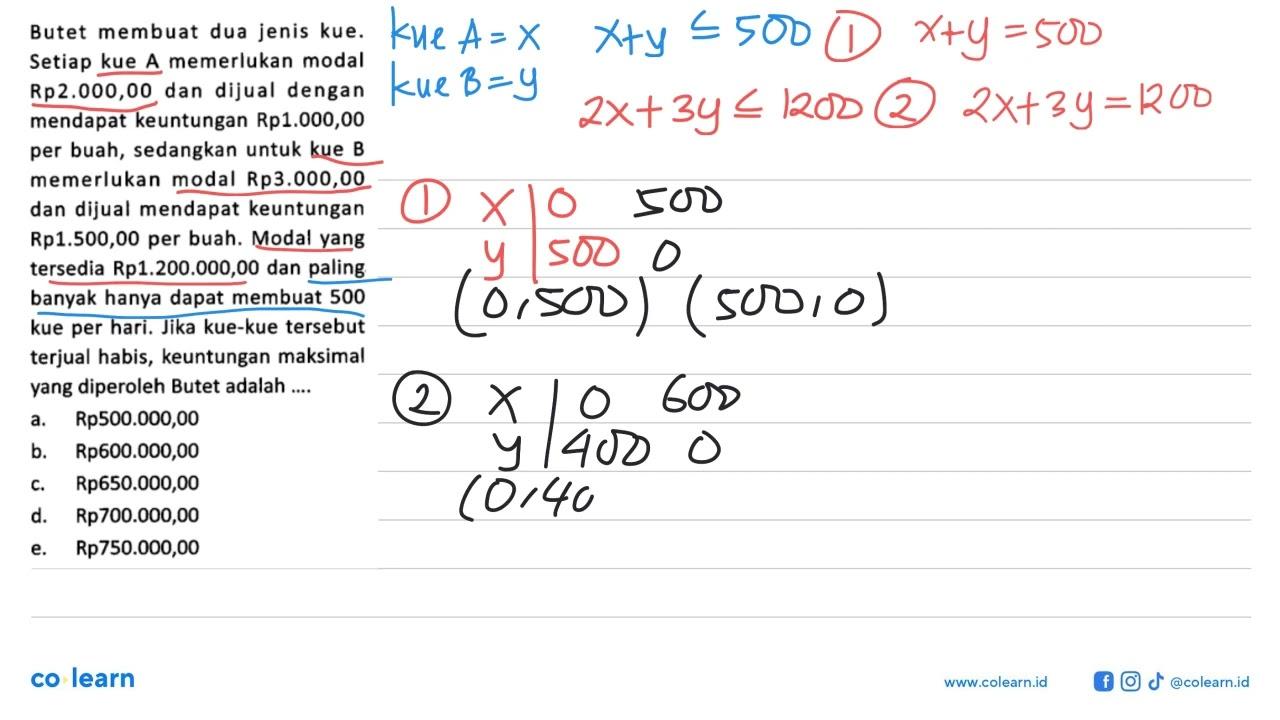 Butet membuat dua jenis kue.
Setiap kue A memerlukan modal
Rp2.000,00 dan dijual dengan
mendapat keuntungan Rp1.000,00
per buah, sedangkan untuk kue B
memerlukan modal Rp3.000,00
dan dijual mendapat keuntungan
Rp1.500,00 per buah. Modal yang
tersedia Rp1.200.000,00 dan paling
banyak hanya dapat membuat 500
kue per hari. Jika kue-kue tersebut
terjual habis, keuntungan maksimal
yang diperoleh Butet adalah ....
a. Rp500.000,00
b. Rp600.000,00
c. Rp650.000,00
d. Rp700.000,00
e. Rp750.000,00
kue A = x x+y ≤ 500 ① x+y = 500
kue B = y
2x+3y ≤ 1200 ② 2x+3y = 1200
① x | 0 500
y | 500 0
(0,500) (500,0)
② x | 0 600
y | 400 0
(0,40
co learn
www.colearn.id
@colearn.id